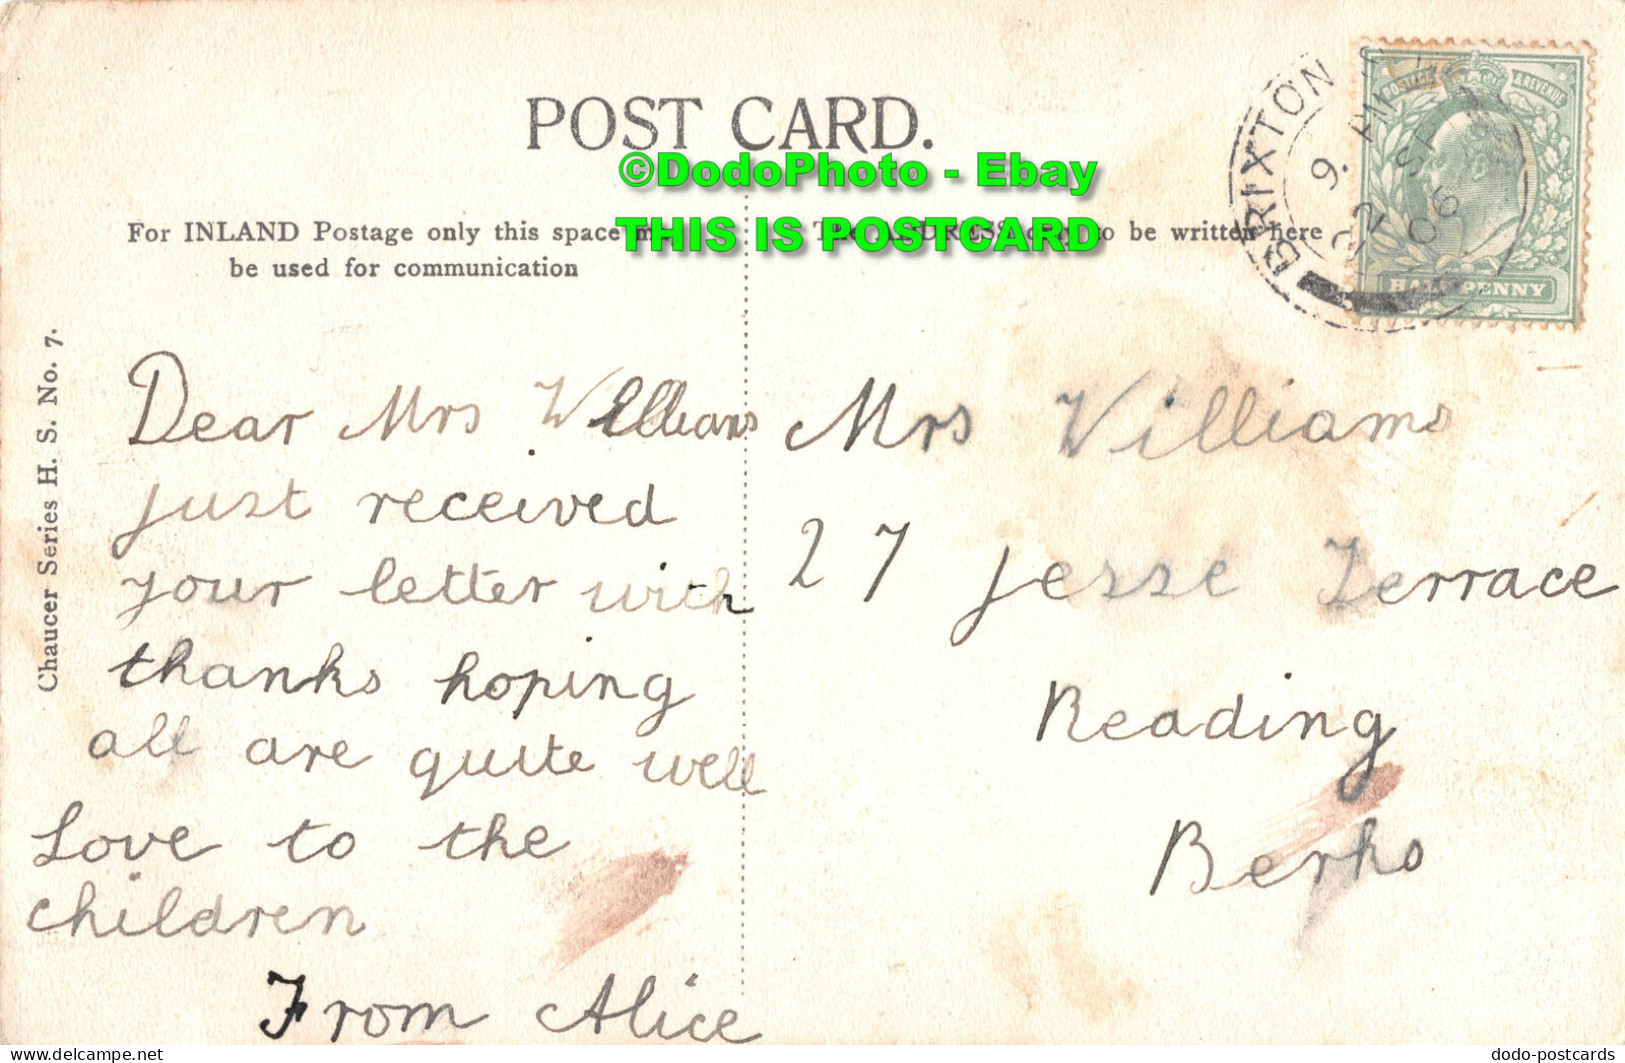 POST CARD.
©DodoPhoto - Ebay
THIS IS POSTCARD
For INLAND Postage only this space may
be used for communication
The ADDRESS only to be written here
BRIXTON
9. PM
22
SE
06
POSTAGE & REVENUE
HALFPENNY
Chaucer Series H. S. No. 7.
Dear Mrs Williams
just received
your letter with
thanks hoping
all are quite well
Love to the
children
From Alice
Mrs Williams
27 Jesse Terrace
Reading
Berks
www.delcampe.net
dodo-postcards